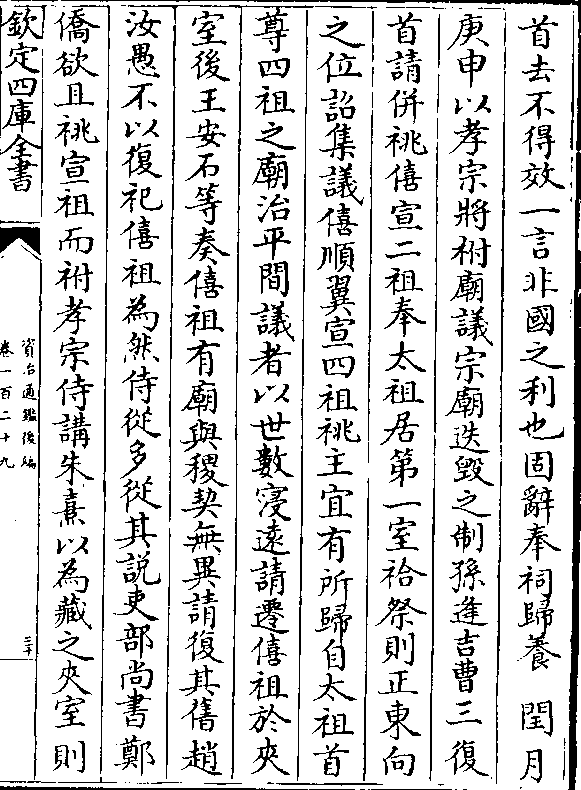 首去不得效一言非國之利也固辭奉祠歸養　閏月
庚申以孝宗將祔廟議宗廟迭毀之制孫逢吉曹三復
首請併祧僖宣二祖奉太祖居第一室祫祭則正東向
之位詔集議僖順翼宣四祖祧主宜有所歸自太祖首
尊四祖之廟治平間議者以世數寖遠請遷僖祖於夾
室後王安石等奏僖祖有廟與稷契無異請復其舊趙
汝愚不以復祀僖祖為然侍從多從其說吏部尚書鄭
僑欲且祧宣祖而祔孝宗侍講朱熹以為藏之夾室則
欽定四庫全書
資治通鑑後編
卷一百二十九
三十